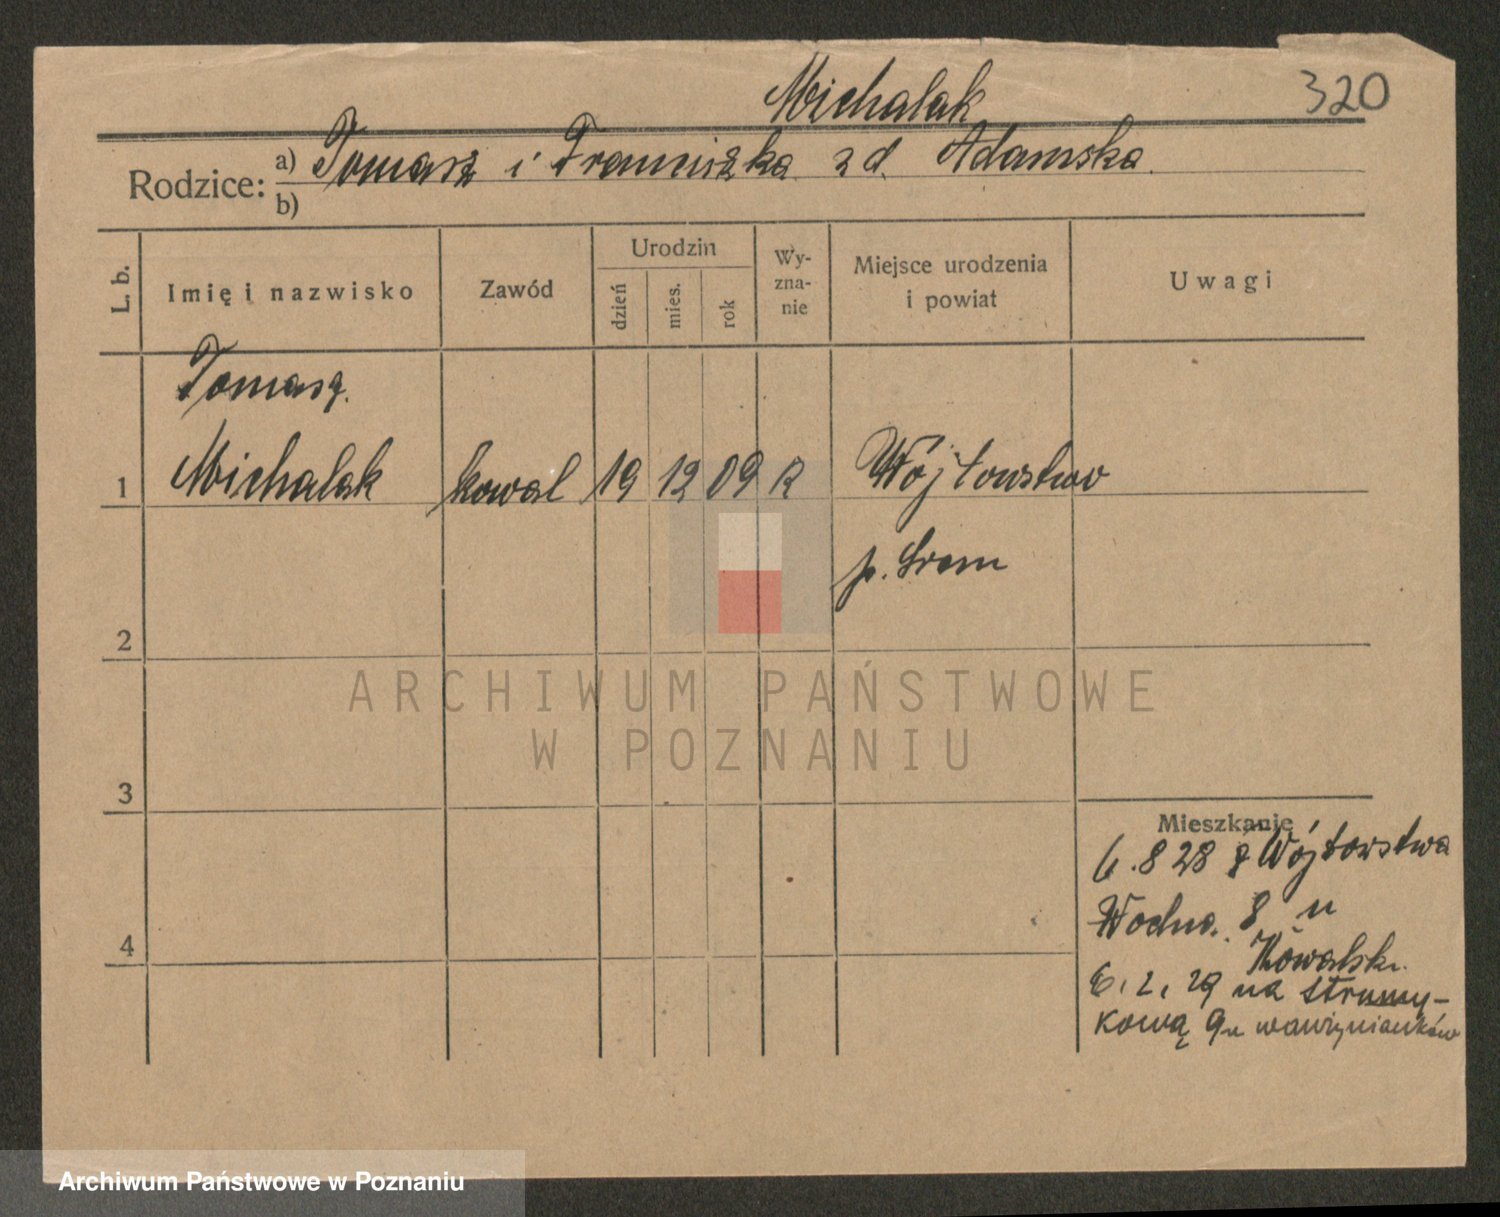 320
Michalak
Rodzice: a) Tomasz i Franciszka z d. Adamska.
b)
L. b.
Imię i nazwisko
Zawód
Urodzin
dzień
mies.
rok
Wy-
zna-
nie
Miejsce urodzenia
i powiat
Uwagi
Tomasz.
1 Michalak kowal 19 12 09 R Wójtowstwo
p. Śrem
2
ARCHIWUM PAŃSTWOWE
W POZNANIU
3
4
Mieszkanie
6.8 28 z Wójtowstwa
Wodna. 8 u
Kowalsk.
6. 2. 29 na Strumy-
kową 9 u
Archiwum Państwowe w Poznaniu